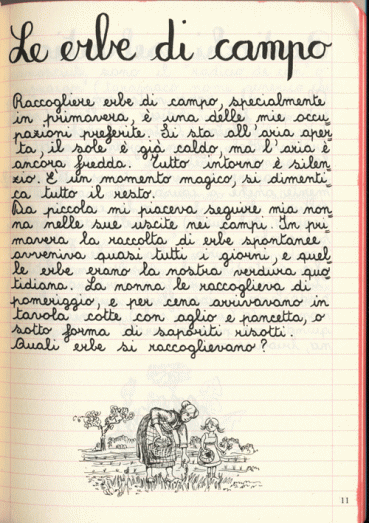 Le erbe di campo
Raccogliere erbe di campo, specialmente
in primavera, è una delle mie occu=
pazioni preferite. Si sta all'aria aper=
ta, il sole è già caldo, ma l'aria è
ancora fredda. Tutto intorno è silen=
zio. È un momento magico, si dimenti=
ca tutto il resto.
Da piccola mi piaceva seguire mia non=
na nelle sue uscite nei campi. In pri=
mavera la raccolta di erbe spontanee
avveniva quasi tutti i giorni, e quel=
le erbe erano la nostra verdura quo=
tidiana. La nonna le raccoglieva di
pomeriggio, e per cena arrivavano in
tavola cotte con aglio e pancetta, o
sotto forma di saporiti risotti.
Quali erbe si raccoglievano?
11